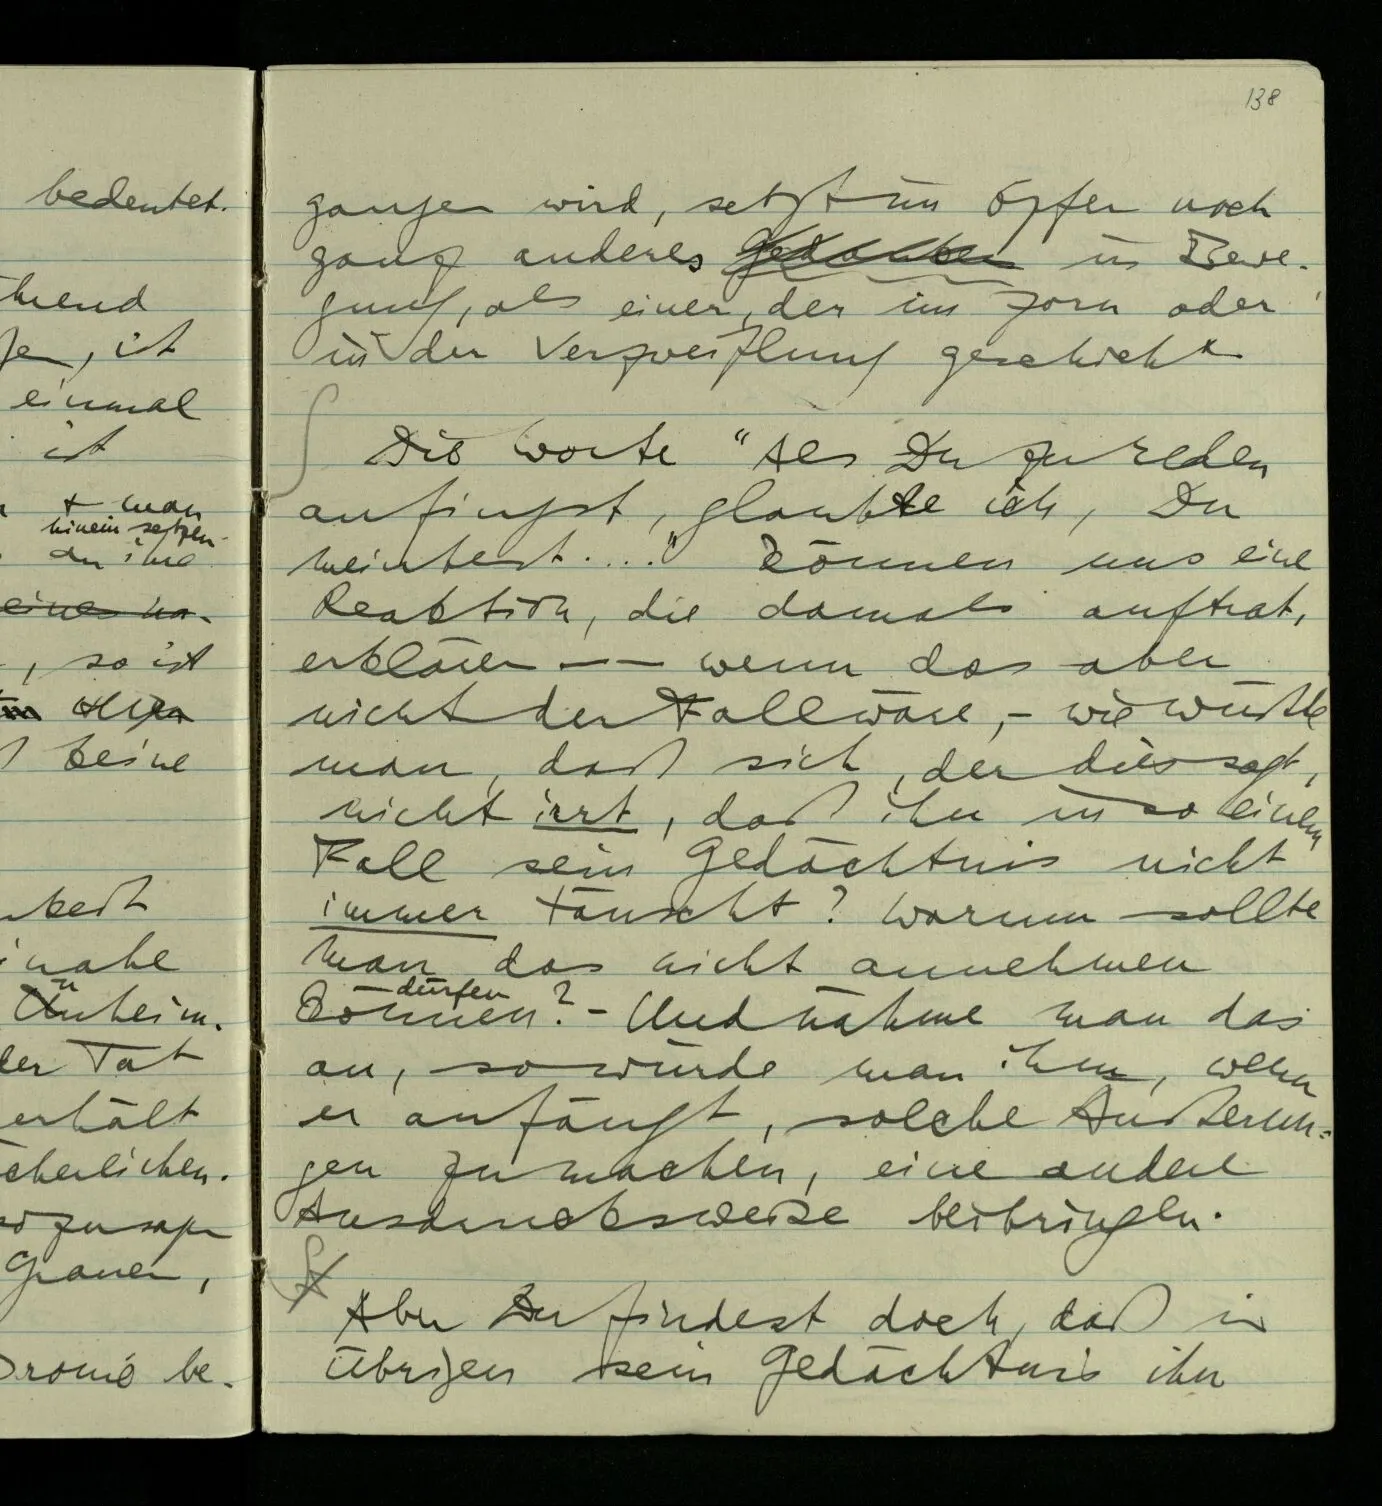 bedeutet.
hend
en, ist
einmal
ist
+ man
hineinsetzen
an ihre
eines
, so ist
keine
keit
nahe
Unheim-
der Tat
erhält
cherlichen.
sozusagen
Grauen,
be-
138
gangen wird, setzt im Opfer noch
ganz anderes Gedanken in Bewe-
gung, als einer, der im Zorn oder
in der Verzweiflung geschieht
Die Worte "Als Du zu reden
anfingst, glaubte ich, Du
meintest...." können uns eine
Reaktion, die damals auftrat,
erklären –– wenn das aber
nicht der Fall wäre, – wie wüßte
man, daß sich, der dies sagt,
nicht irrt, daß ihn in so einem
Fall sein Gedächtnis nicht
immer täuscht? Warum sollte
man das nicht annehmen
dürfen
können? – Und nähme man das
an, so würde man ihm, wenn
er anfängt, solche Äußerun-
gen zu machen, eine andere
Ausdrucksweise beibringen.
Aber Du findest doch, daß im
Übrigen sein Gedächtnis ihn